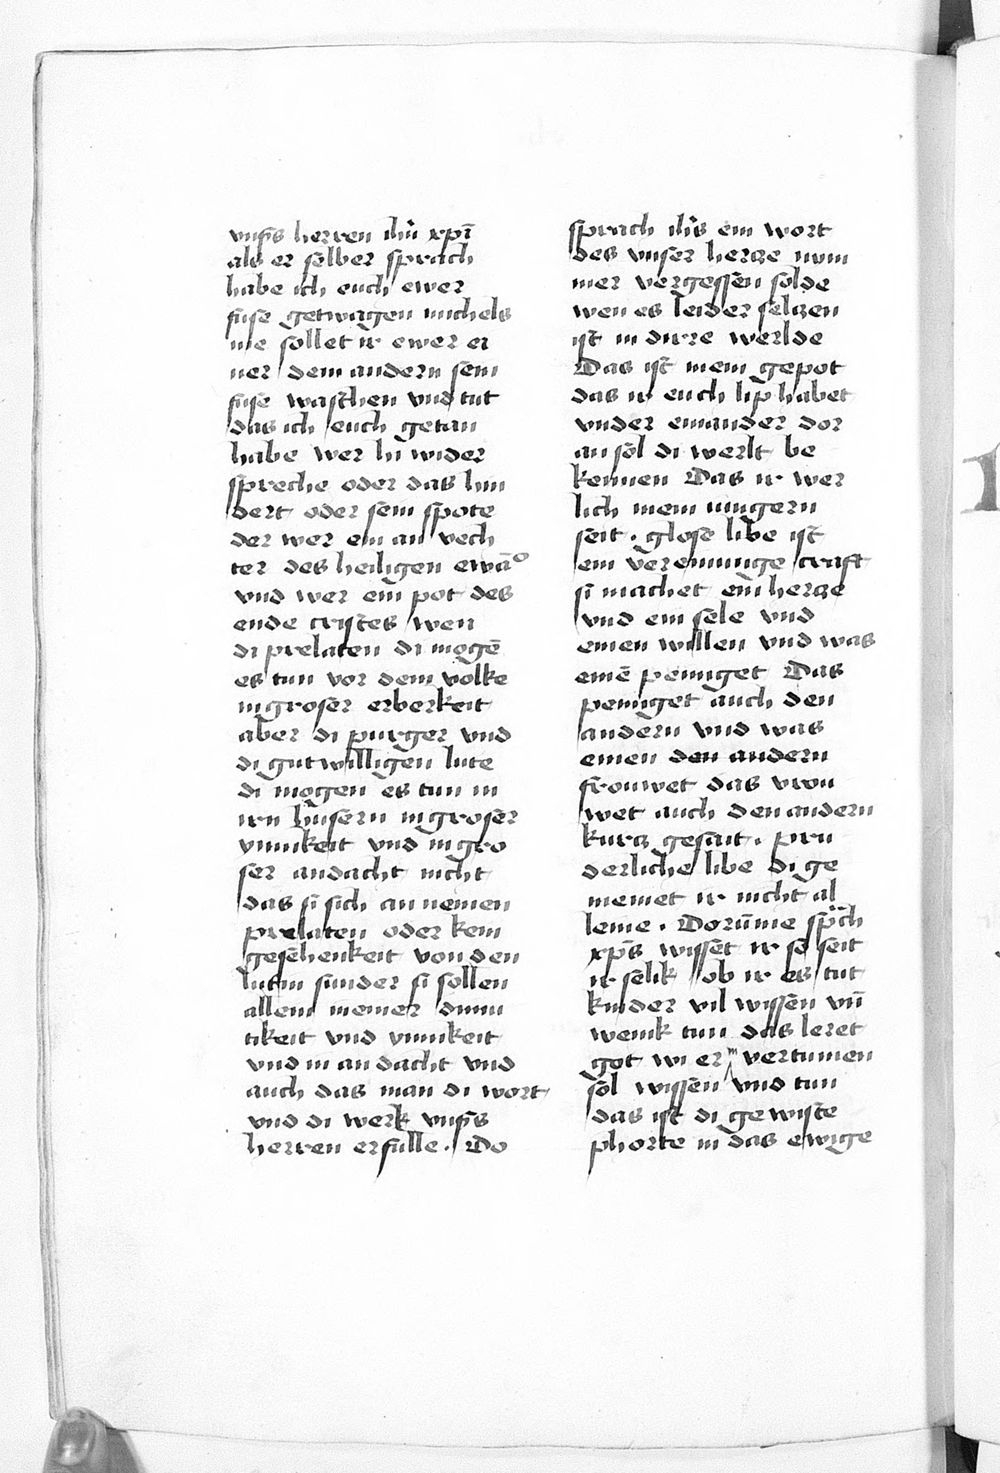 vnſˢs herren ih̄u xp̄i
als er selber sprach
habe ich euch ewer
fuse getwagen michels
me sollet ir ewer ei
ner dem andern sein
fuse waschen vnd tut
das ich euch getan
habe wer hi wider
spreche oder das hin
dert oder sein spote
der wer ein an vech
ter des heiligen ewā°
vnd wer ein pot des
ende cristes wen
di prelaten di mogē
es tun vor dem volke
in groser erberkeit
aber di purger vnd
di gutwilligen lute
di mogen es tun in
irn husern in groser
vnnikeit vnd in gro
ser andacht nicht
das si sich an nemen
prelaten oder kein
geschenkeit von den
lutin sunder si sollen
allein meiner dimu
tikeit vnd vnnikeit
vnd in andacht vnd
auch das man di wort
vnd di werk vnſˢs
herren erfulle. Do
sprach ih̄s ein wort
des vnser hercze nim
mer vergessen solde
wen es leider selczen
ist in dirre werlde
Das ist mein gepot
das ir euch lip habet
vnder einander dor
an sol di werlt be
kennen Das ir wer
lich mein iungern
seit. glose libe ist
ein vereinunge craft
si machet ein hercze
vnd ein sele vnd
einen willen vnd was
einē peiniget Das
peiniget auch den
andern vnd was
einen den andern
frouwet das vrou
wet auch den andern
kurcz gesait. pru
derliche libe di ge
meinet ir nicht al
leine. Dorūme sp̈ch
xp̄s wisset ir se seit
ir selik ob ir es tut
kinder vil wissen vn̄
wenik tun das leret
got wi er vertumen
sol wissen vnd tun
das ist di gewiste
phorte in das ewige